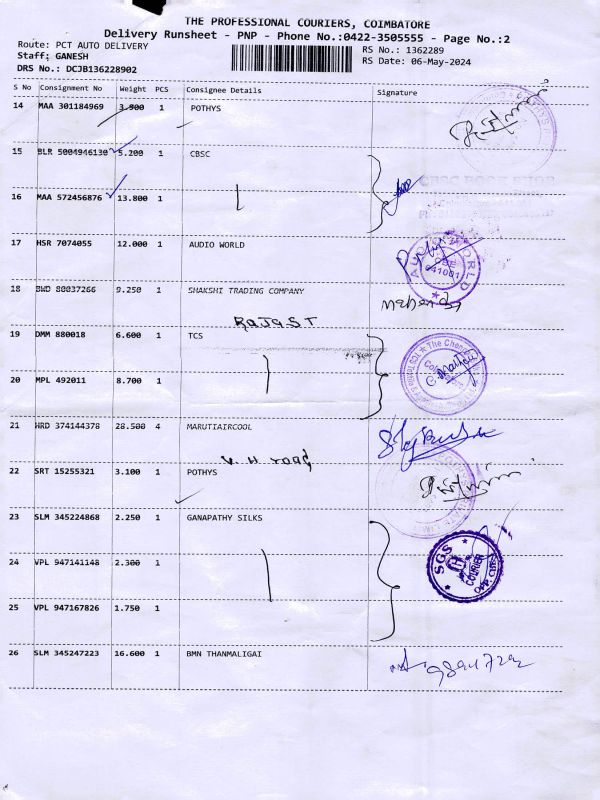 THE PROFESSIONAL COURIERS, COIMBATORE
Delivery Runsheet - PNP - Phone No.:0422-3505555 - Page No.:2
Route: PCT AUTO DELIVERY
RS No.: 1362289
Staff: GANESH
RS Date: 06-May-2024
DRS No.: DCJB136228902
S No Consignment No Weight PCS Consignee Details Signature
14 MAA 301184969 3.900 1 POTHYS
15 BLR 5004946130 5.200 1 CBSC
16 MAA 572456876 13.800 1
17 HSR 7074055 12.000 1 AUDIO WORLD
18 BWD 80037266 9.250 1 SHAKSHI TRADING COMPANY
RAJA ST
19 DMM 880018 6.600 1 TCS
20 MPL 492011 8.700 1
21 HRD 374144378 28.500 4 MARUTIAIRCOOL
V. H road
22 SRT 15255321 3.100 1 POTHYS
23 SLM 345224868 2.250 1 GANAPATHY SILKS
SGS
COURIER
24 VPL 947141148 2.300 1
25 VPL 947167826 1.750 1
26 SLM 345247223 16.600 1 BMN THANMALIGAI